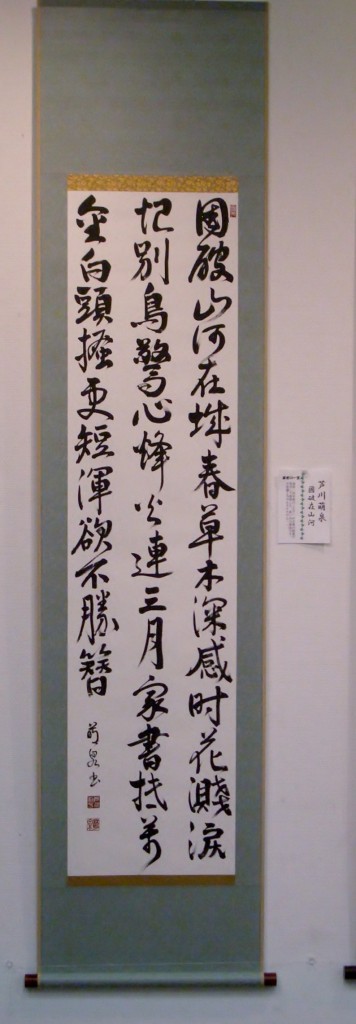 國破山河在城春草木深感时花濺淚
恨别鳥驚心烽火連三月家書抵万
金白頭搔更短渾欲不勝簪
萌泉书
芦川萌泉
國破在山河